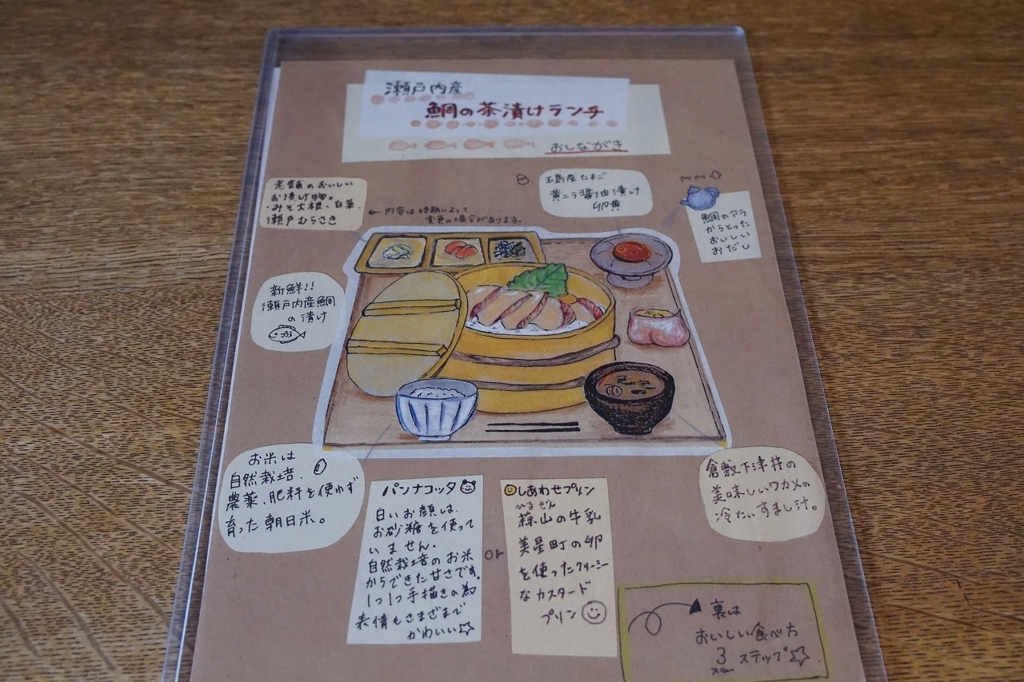 瀬戸内産
鯛の茶漬けランチ
おしながき
老舗のおいしい
お漬け物。
みそ大根、白菜、
瀬戸むらさき
← 内容は時期によって
変更の場合があります。
玉島産たまご
黄ニラ醤油漬け
卵黄
鯛のアラ
からとった
おいしい
おだし
新鮮!!
瀬戸内産鯛
の漬け
お米は
自然栽培。
農薬、肥料を使わず
育った朝日米。
パンナコッタ
白いお顔は、
お砂糖を使って
いません。
自然栽培のお米
からできた甘さです。
1つ1つ手描きの為
表情もさまざまで
かわいい☆
or
しあわせプリン
ひるぜん
蒜山の牛乳
美星町の卵
を使ったクリーミー
なカスタード
プリン
倉敷下津井の
美味しいワカメの
冷たいすまし汁。
裏は
おいしい食べ方
3ステップ☆